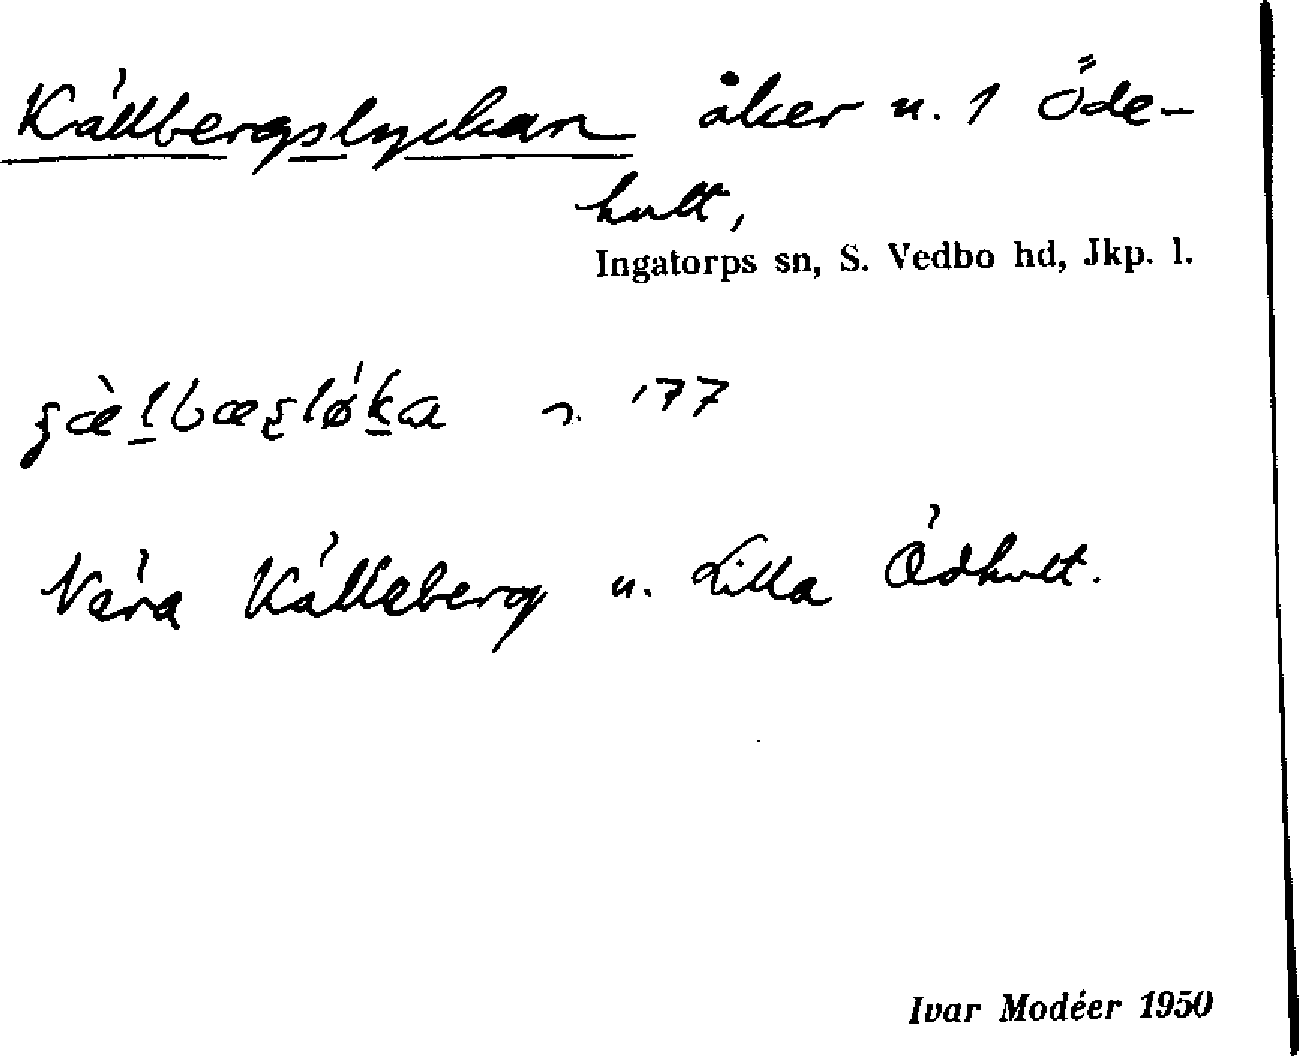 Källbergslyckan åker u. 1 Öde-
hult,
Ingatorps sn, S. Vedbo hd, Jkp. l.
'77
Nära Källeberg u. Lilla Ödhult.
Ivar Modéer 1950